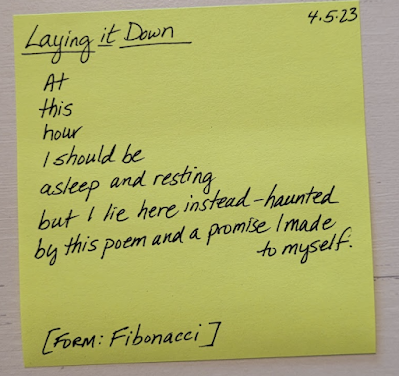 4.5.23
Laying it Down
At
this
hour
I should be
asleep and resting
but I lie here instead-haunted
by this poem and a promise I made
to myself.
[FORM: Fibonacci]